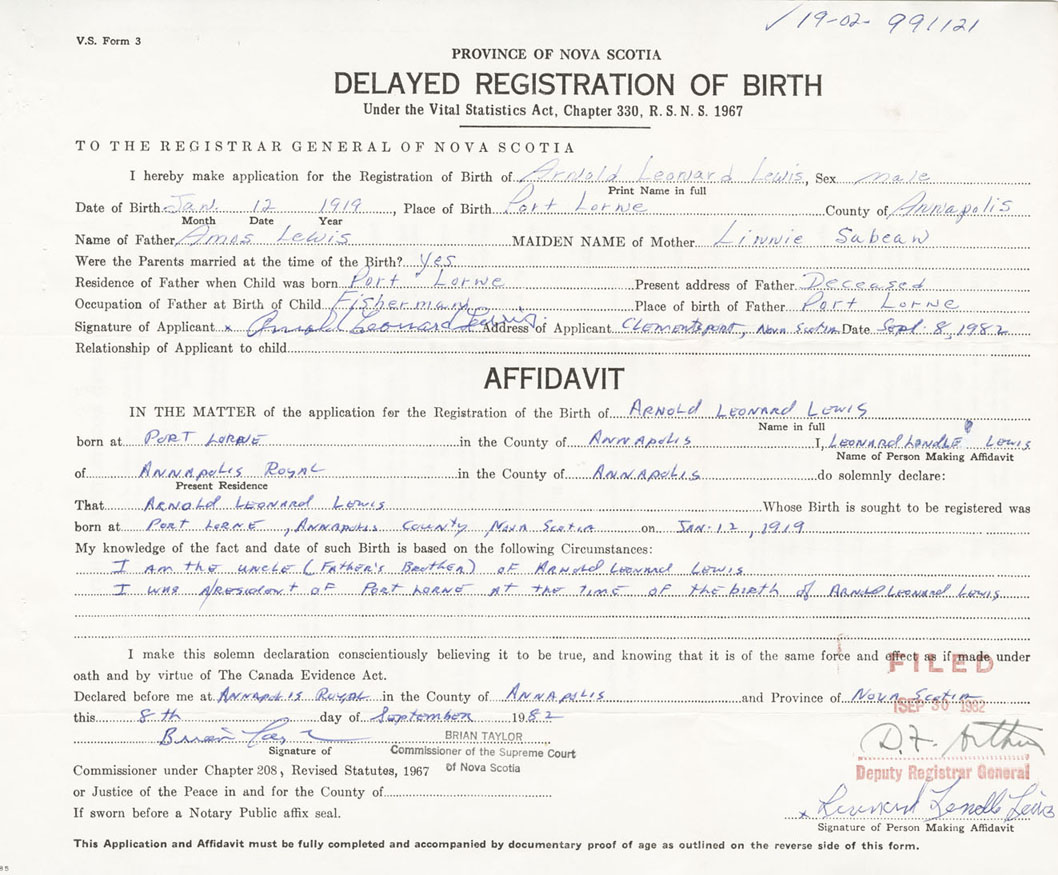 ✓ 19-02- 991121
V.S. Form 3
PROVINCE OF NOVA SCOTIA
DELAYED REGISTRATION OF BIRTH
Under the Vital Statistics Act, Chapter 330, R. S. N. S. 1967
TO THE REGISTRAR GENERAL OF NOVA SCOTIA
I hereby make application for the Registration of Birth of Arnold Leonard Lewis, Sex male
Print Name in full
Date of Birth Jan. 12 1919, Place of Birth Port Lorne County of Annapolis
Month Date Year
Name of Father Amos Lewis MAIDEN NAME of Mother Linnie Sabean
Were the Parents married at the time of the Birth? yes
Residence of Father when Child was born Port Lorne Present address of Father Deceased
Occupation of Father at Birth of Child Fisherman Place of birth of Father Port Lorne
Signature of Applicant x Arnold Leonard Lewis Address of Applicant Clementsport, Nova Scotia Date Sept. 8, 1982
Relationship of Applicant to child
AFFIDAVIT
IN THE MATTER of the application for the Registration of the Birth of ARNOLD LEONARD LEWIS
Name in full
born at PORT LORNE in the County of ANNAPOLIS I, LEONARD LENDLE LEWIS
Name of Person Making Affidavit
of ANNAPOLIS ROYAL in the County of ANNAPOLIS do solemnly declare:
Present Residence
That ARNOLD LEONARD LEWIS Whose Birth is sought to be registered was
born at PORT LORNE, ANNAPOLIS COUNTY NOVA SCOTIA on JAN. 12, 1919
My knowledge of the fact and date of such Birth is based on the following Circumstances:
I AM the UNCLE (FATHER'S BROTHER) OF ARNOLD LEONARD LEWIS
I WAS A RESIDENT OF PORT LORNE AT the TIME OF the birth of ARNOLD LEONARD LEWIS
I make this solemn declaration conscientiously believing it to be true, and knowing that it is of the same force and effect as if made under
oath and by virtue of The Canada Evidence Act.
FILED
Declared before me at ANNAPOLIS ROYAL in the County of ANNAPOLIS and Province of NOVA SCOTIA
SEP 30 1982
this 8th day of September 1982
Brian Taylor BRIAN TAYLOR
Signature of Commissioner of the Supreme Court
of Nova Scotia
D.F. Arthur
Deputy Registrar General
Commissioner under Chapter 208, Revised Statutes, 1967
or Justice of the Peace in and for the County of
If sworn before a Notary Public affix seal.
x Leonard Lendle Lewis
Signature of Person Making Affidavit
This Application and Affidavit must be fully completed and accompanied by documentary proof of age as outlined on the reverse side of this form.
85